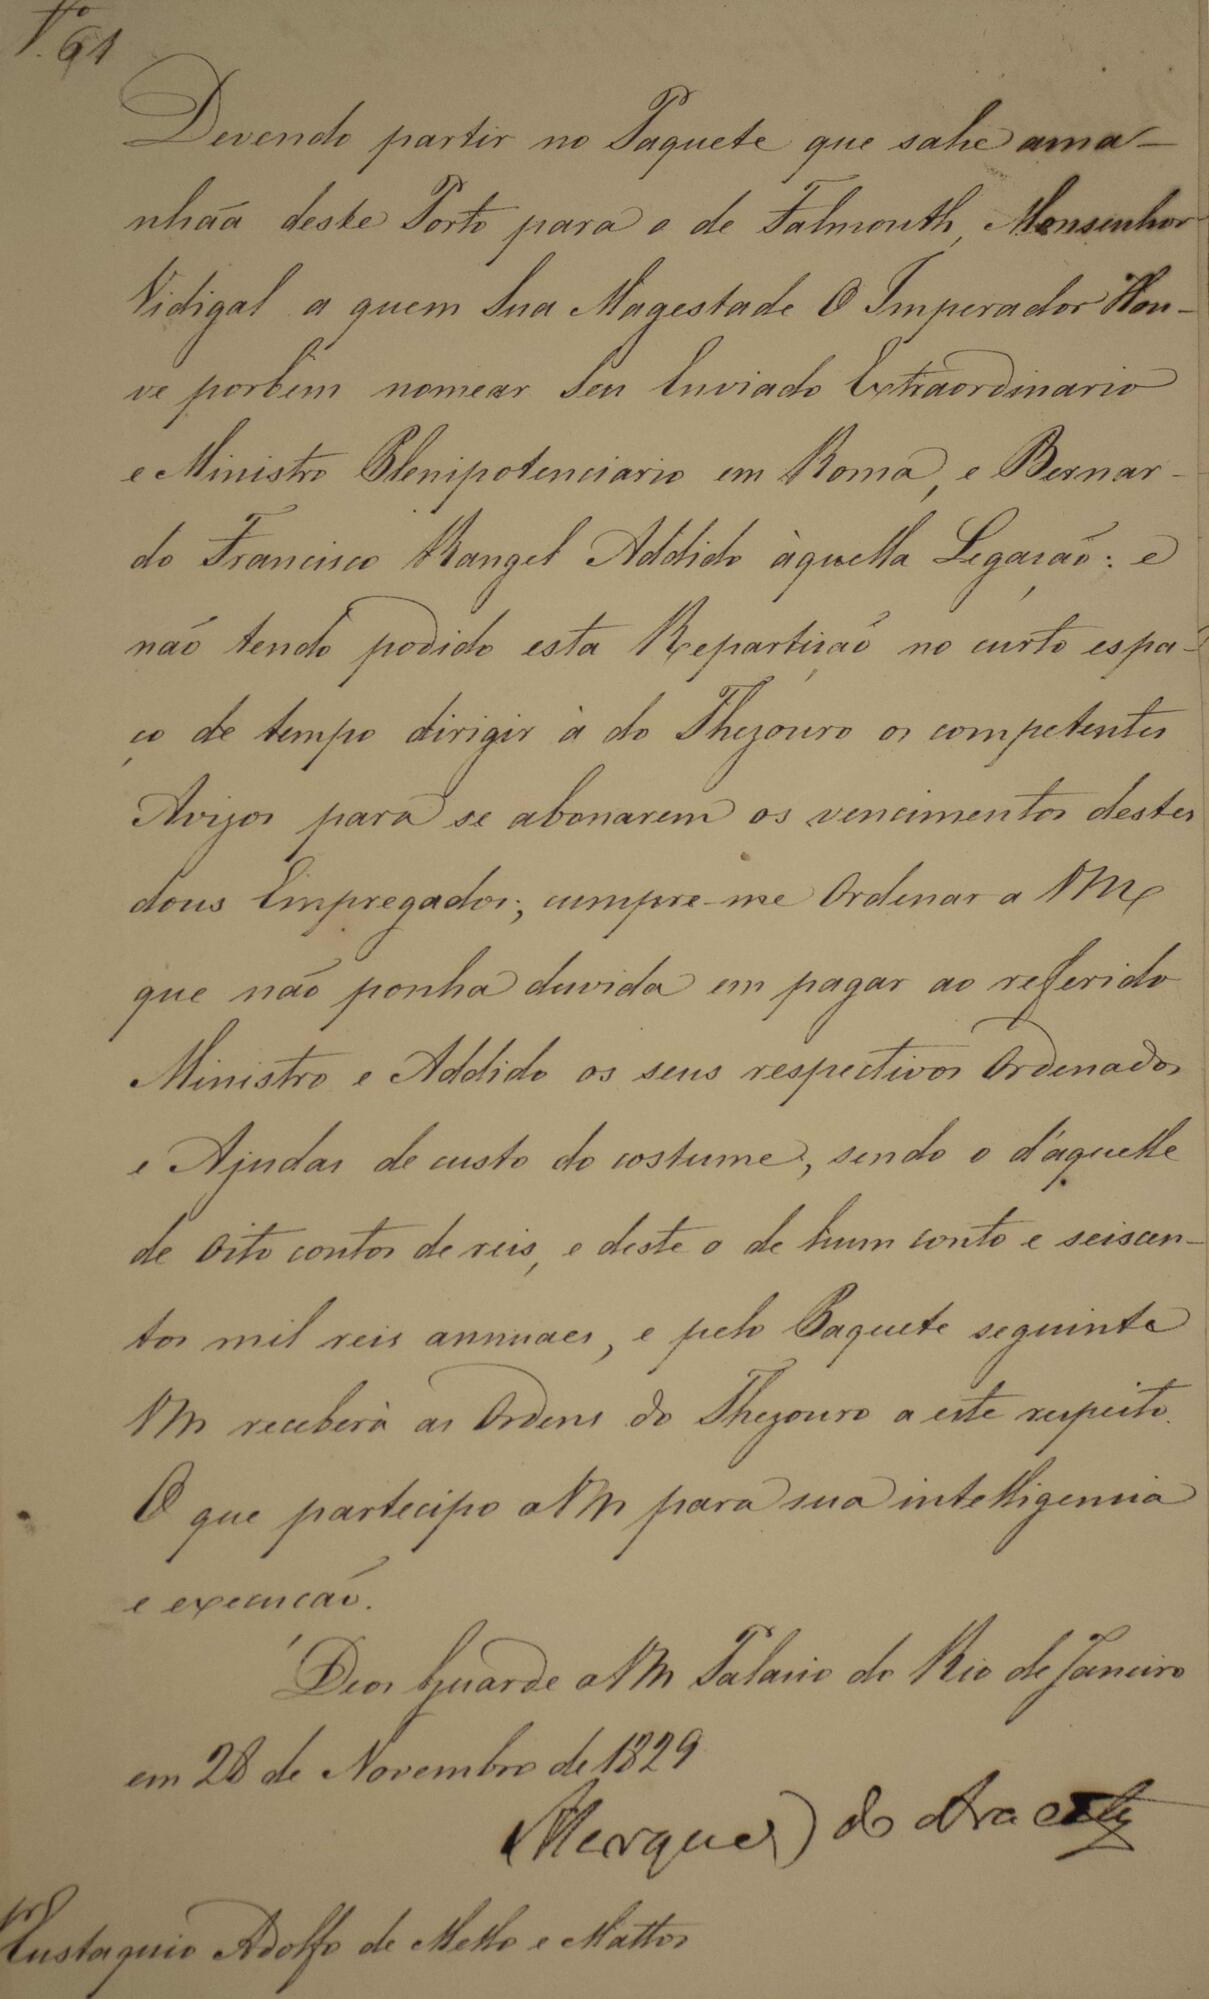 Nº 61
Devendo partir no Paquete que sahe ama-
nhãa deste Porto para o de Falmouth, Monsenhor
Vidigal a quem Sua Magestade O Imperador Hou-
ve porbem nomear Seu Enviado Extraordinario
e Ministro Plenipotenciario em Roma, e Bernar-
do Francisco Rangel Addido àquella Legação: e
não tendo podido esta Repartição no curto espa-
ço de tempo dirigir à do Thezouro os competentes
Avizos para se abonarem os vencimentos destes
dous Empregados; cumpre-me Ordenar a VMce
que não ponha duvida em pagar ao referido
Ministro e Addido os seus respectivos Ordenados
e Ajudas de custo do costume, sendo o d'aquelle
de oito contos de reis, e deste o de hum conto e seiscen-
tos mil reis annuaes, e pelo Paquete seguinte
VM receberà as Ordens do Thezouro a este respeito.
O que partecipo a VM para sua intelligencia
e execução.
Deos Guarde a VM Palacio do Rio de Janeiro
em 28 de Novembro de 1829
Marquez do Aracaty
Snr
Eustaquio Adolfo de Mello e Mattos